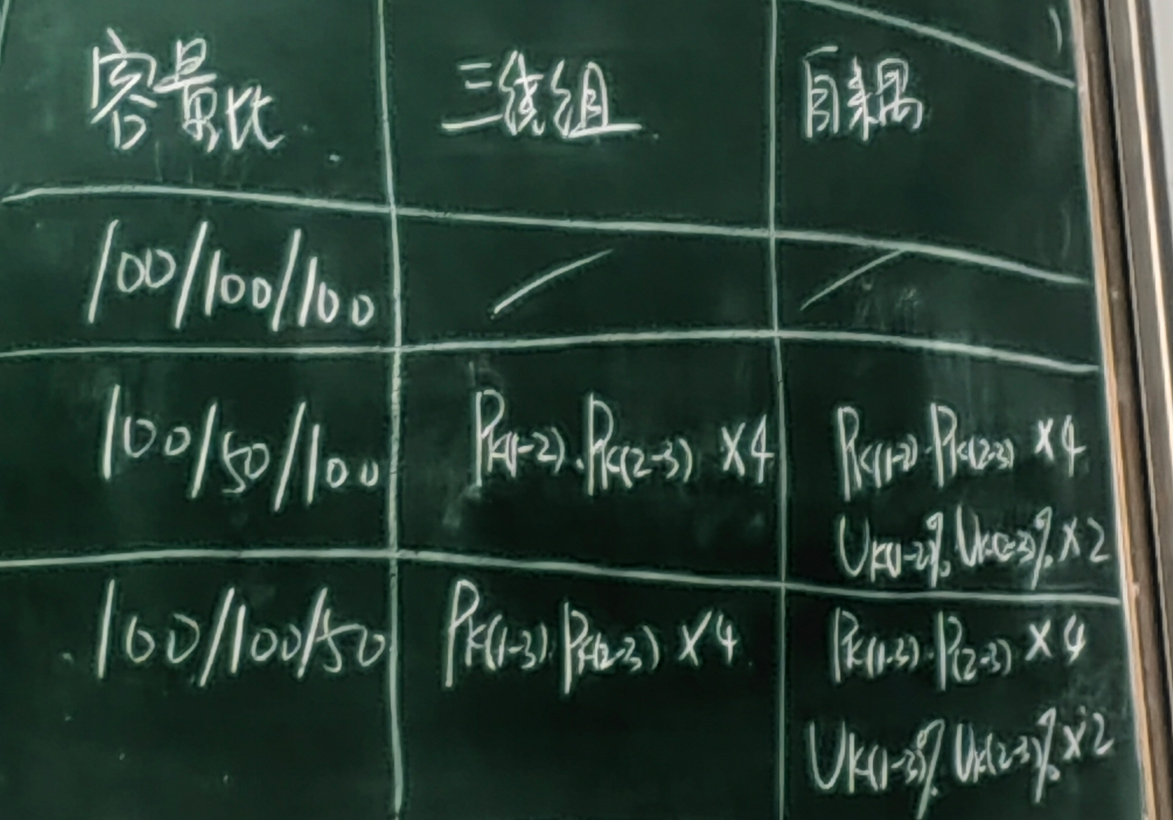 容量比 三绕组 自耦
100/100/100 / /
100/50/100 Pk(1-2).Pk(2-3) ×4 Pk(1-2).Pk(2-3) ×4
Uk(1-2)%.Uk(2-3)%.×2
100/100/50 Pk(1-3).Pk(2-3) ×4 Pk(1-3).P(2-3) ×4
Uk(1-3)%.Uk(2-3)%.×2